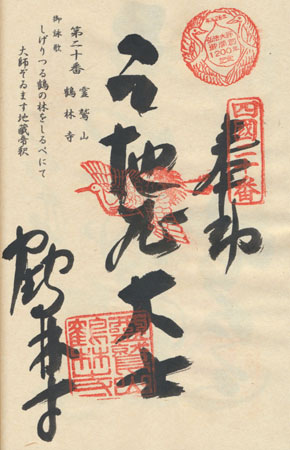 1200年
四國二十番
奉納
地蔵大士
鶴林寺
第二十番 靈鷲山
鶴林寺
御詠歌
しげりつる鶴の林をしるべにて
大師ぞゐます地蔵帝釈